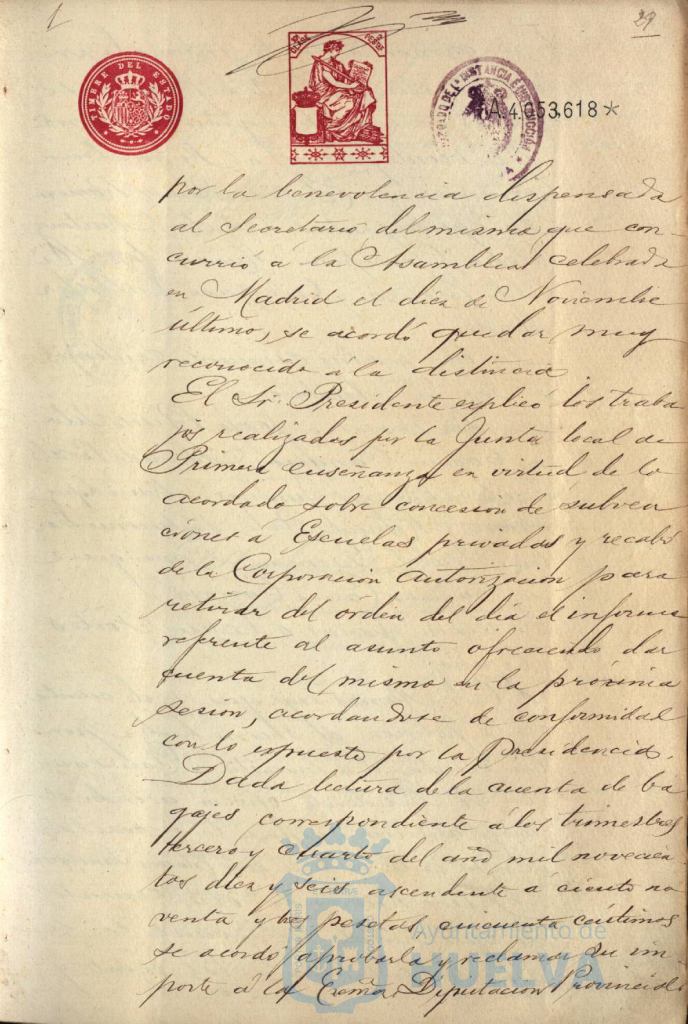 29
TIMBRE DEL ESTADO
A.4.053.618*
por la benevolencia dispensada
al Secretario del misma que con-
currió á la Asamblea celebrada
en Madrid el diez de Noviembre
último, se acordó quedar muy
reconocida á la distincia
El Sr. Presidente explicó los traba
jos realizados por la Junta local de
Primera enseñanza en virtud de lo
acordado sobre concesion de subven
ciones á Escuelas privadas y recabó
de la Corporación autorización para
retirar del órden del dia el informe
referente al asunto ofreciendo dar
cuenta del mismo en la próxima
sesion, acordandose de conformidad
con lo expuesto por la Presidencia.
Dada lectura de la cuenta de ba
gajes correspondiente á los trimestres
tercero y cuarto del año mil novecien
tos diez y seis ascendente á ciento no
venta y tres pesetas cincuenta céntimos
se acordó aprobarla y reclamar su im-
porte á la Exma. Diputacion Provincial
Ayuntamiento de
HUELVA